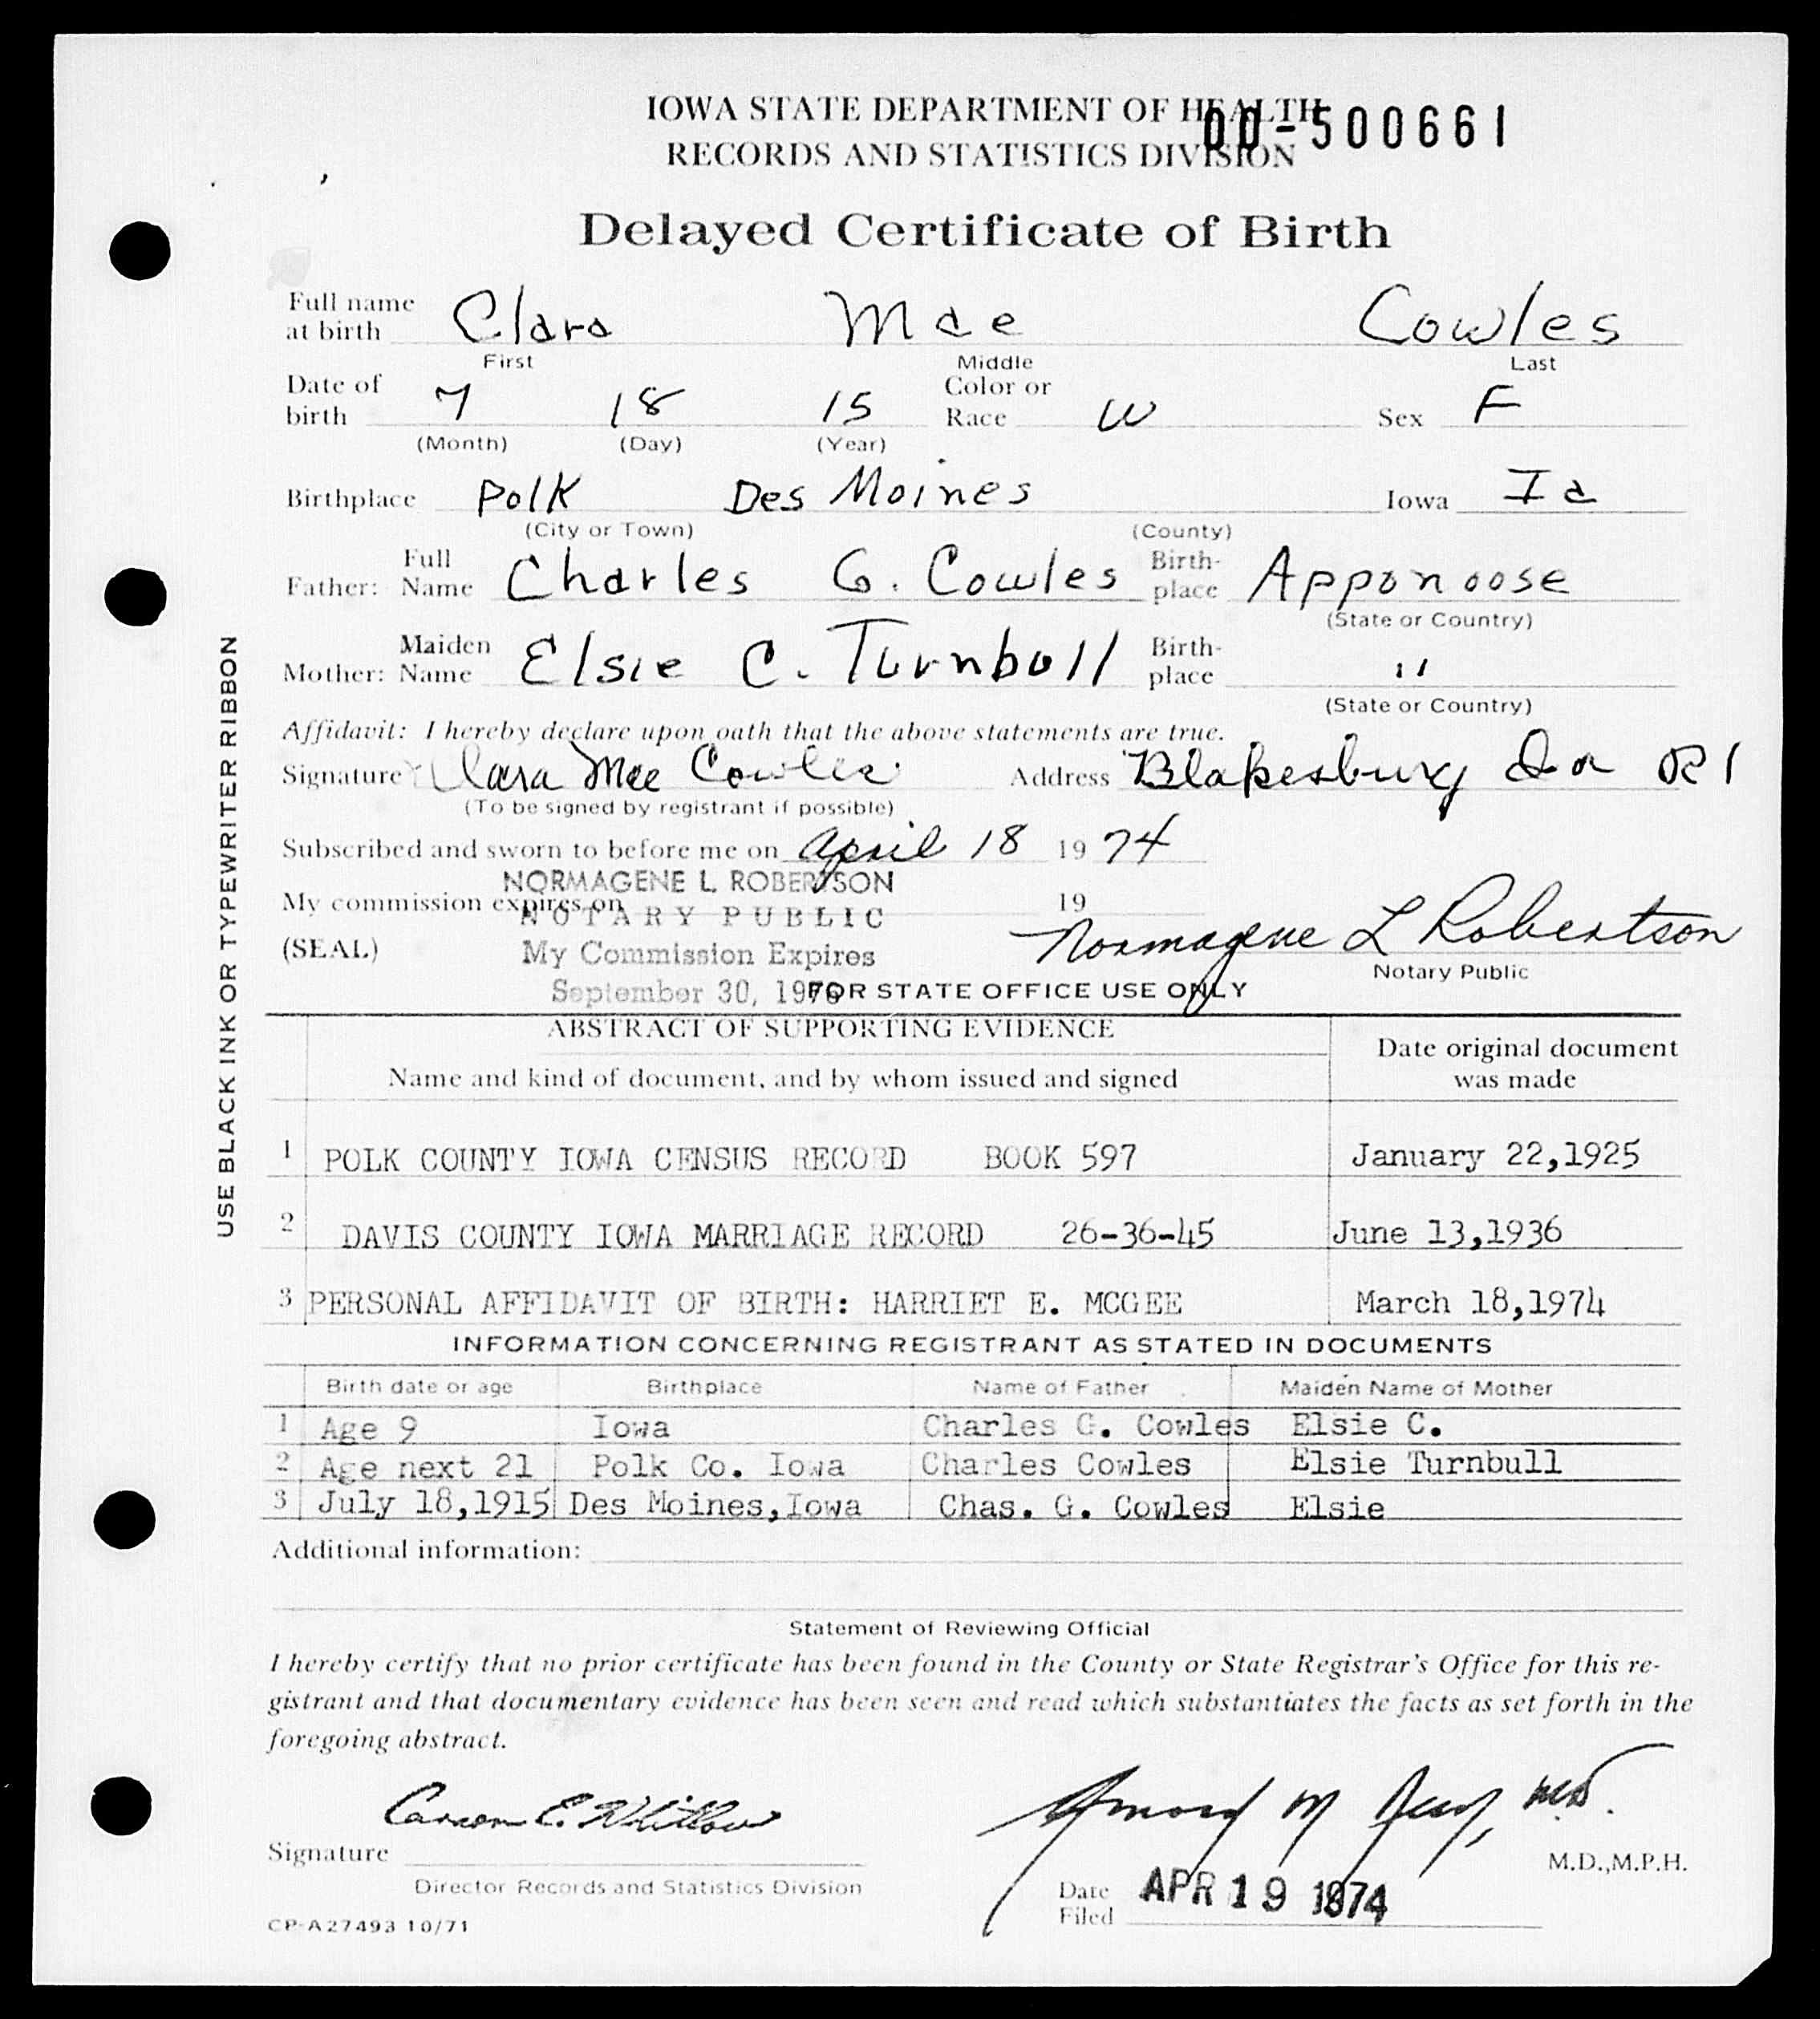 IOWA STATE DEPARTMENT OF HEALTH
00-500661
RECORDS AND STATISTICS DIVISION
Delayed Certificate of Birth
Full name at birth Clara Mae Cowles
First Middle Last
Date of birth 7 18 15 Color or Race W Sex F
(Month) (Day) (Year)
Birthplace Polk Des Moines Iowa Ia
(City or Town) (County)
Father: Full Name Charles G. Cowles Birth-place Apponoose
(State or Country)
Mother: Maiden Name Elsie C. Turnbull Birth-place "
(State or Country)
Affidavit: I hereby declare upon oath that the above statements are true.
Signature Clara Mae Cowles Address Blakesburg Ia R1
(To be signed by registrant if possible)
Subscribed and sworn to before me on April 18 19 74
NORMAGENE L. ROBERTSON
My commission expires on 19
NOTARY PUBLIC
(SEAL) My Commission Expires Normagene L Robertson
Notary Public
September 30, 1976
FOR STATE OFFICE USE ONLY
ABSTRACT OF SUPPORTING EVIDENCE
Name and kind of document, and by whom issued and signed
Date original document was made
1 POLK COUNTY IOWA CENSUS RECORD BOOK 597 January 22,1925
2 DAVIS COUNTY IOWA MARRIAGE RECORD 26-36-45 June 13,1936
3 PERSONAL AFFIDAVIT OF BIRTH: HARRIET E. MCGEE March 18,1974
INFORMATION CONCERNING REGISTRANT AS STATED IN DOCUMENTS
Birth date or age Birthplace Name of Father Maiden Name of Mother
1 Age 9 Iowa Charles G. Cowles Elsie C.
2 Age next 21 Polk Co. Iowa Charles Cowles Elsie Turnbull
3 July 18,1915 Des Moines,Iowa Chas. G. Cowles Elsie
Additional information:
Statement of Reviewing Official
I hereby certify that no prior certificate has been found in the County or State Registrar's Office for this re-
gistrant and that documentary evidence has been seen and read which substantiates the facts as set forth in the
foregoing abstract.
Signature Carson E. Whitlow
M.D.
M.D.,M.P.H.
Director Records and Statistics Division
Date Filed APR 19 1974
CP-A27493 10/71
USE BLACK INK OR TYPEWRITER RIBBON